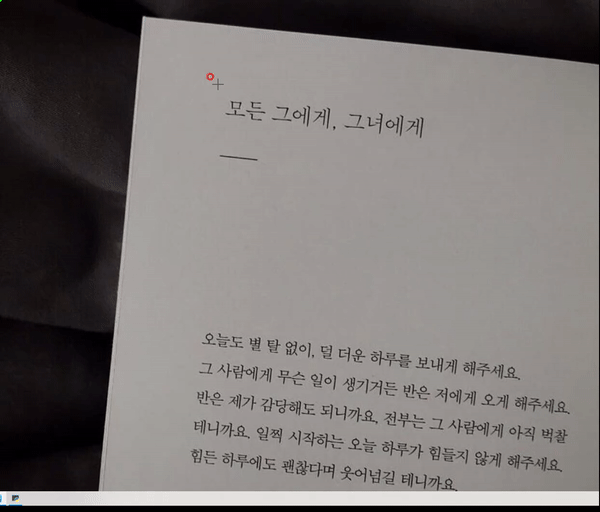 모든 그에게, 그녀에게
오늘도 별 탈 없이, 덜 더운 하루를 보내게 해주세요.
그 사람에게 무슨 일이 생기거든 반은 저에게 오게 해주세요.
반은 제가 감당해도 되니까요. 전부는 그 사람에게 아직 벅찰
테니까요. 일찍 시작하는 오늘 하루가 힘들지 않게 해주세요.
힘든 하루에도 괜찮다며 웃어넘길 테니까요.